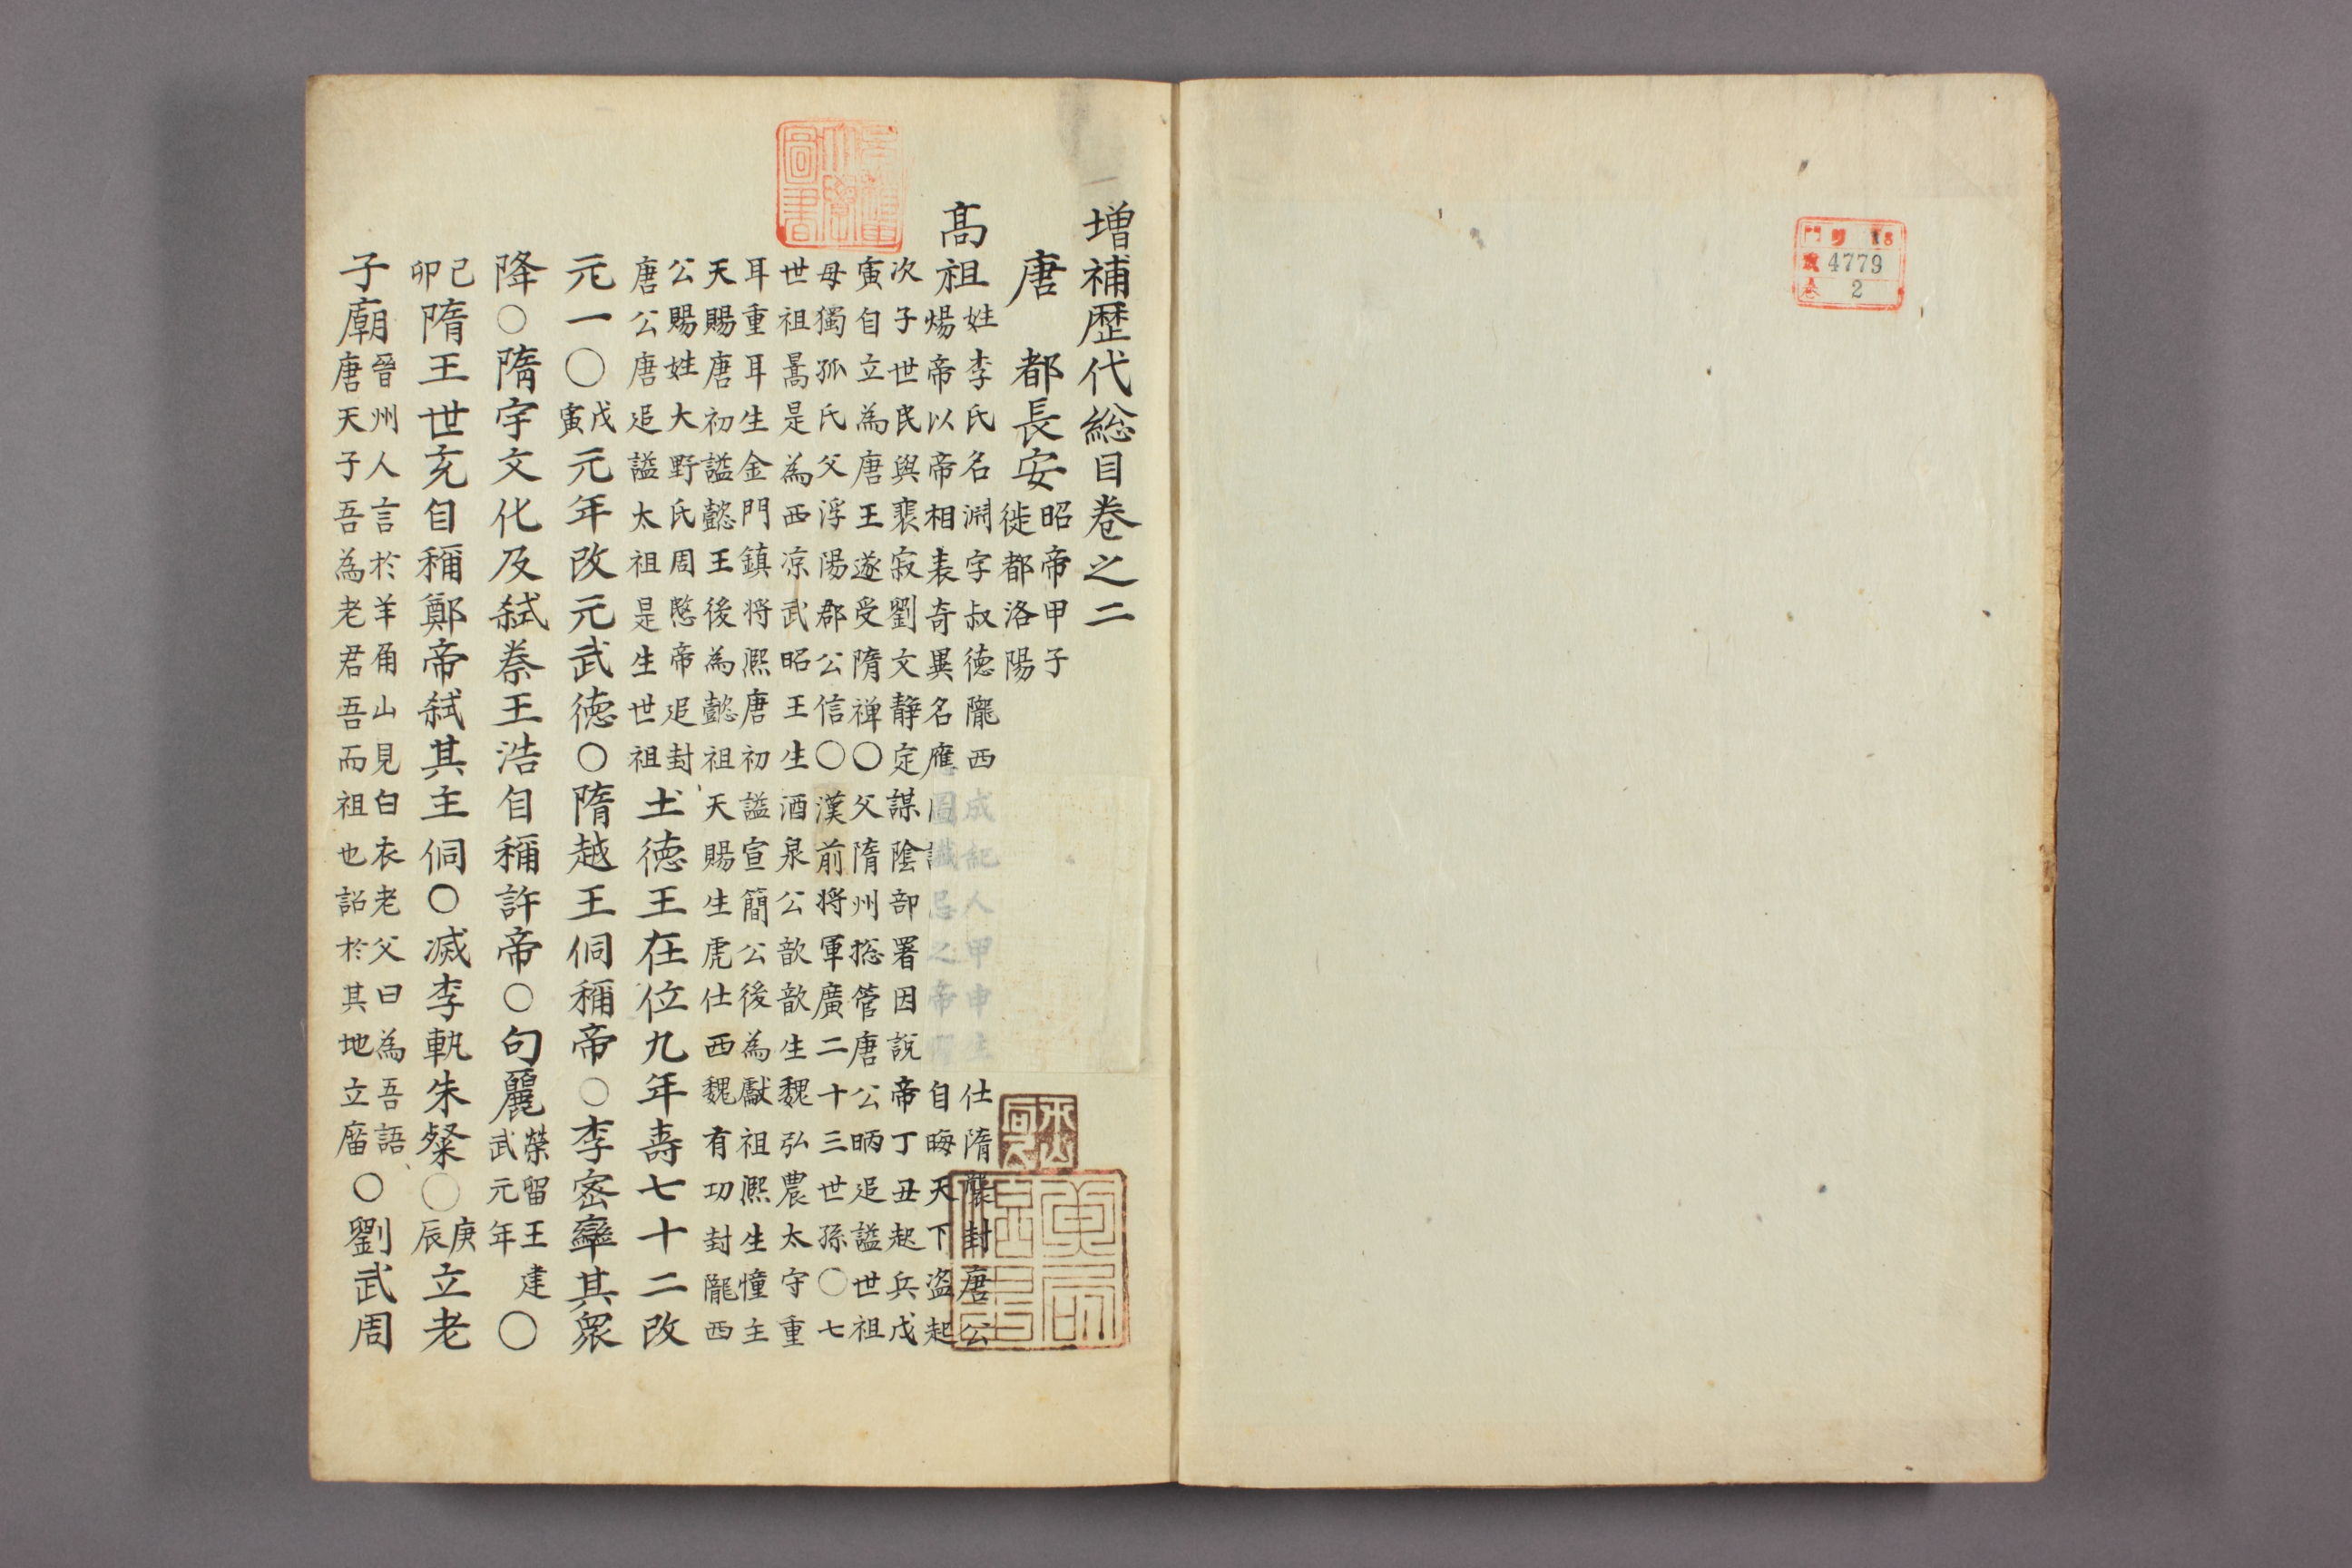 門 號 18
4779
卷 2
增補歷代総目卷之二
唐 都長安 昭帝甲子
徙都洛陽
高祖 姓李氏名淵字叔德隴西成紀人甲申生仕隋襲封唐公
煬帝以帝相表奇異名應圖讖忌之帝懼自晦天下盜起
次子世民與裴寂劉文靜定謀陰部署因說帝丁丑起兵戊
寅自立為唐王遂受隋禅〇父隋州捴管唐公昞追謚世祖
母獨孤氏父浮陽郡公信〇漢前将軍廣二十三世孫〇七
世祖暠是為西凉武昭王生酒泉公歆歆生魏弘農太守重
耳重耳生金門鎮将熈唐初謚宣簡公後為獻祖熈生憧主
天賜唐初謚懿王後為懿祖天賜生虎仕西魏有功封隴西
公賜姓大野氏周愍帝追封
唐公唐追謚太祖是生世祖 土德王在位九年壽七十二改
元一〇戊寅元年改元武德〇隋越王侗稱帝〇李密率其衆
降〇隋宇文化及弑秦王浩自稱許帝〇句麗榮留王建武元年〇
己卯隋王世充自稱鄭帝弑其主侗〇滅李軌朱粲〇庚辰立老
子廟 晉州人言於羊角山見白衣老父曰為吾語
唐天子吾為老君吾而祖也詔於其地立廟 〇劉武周